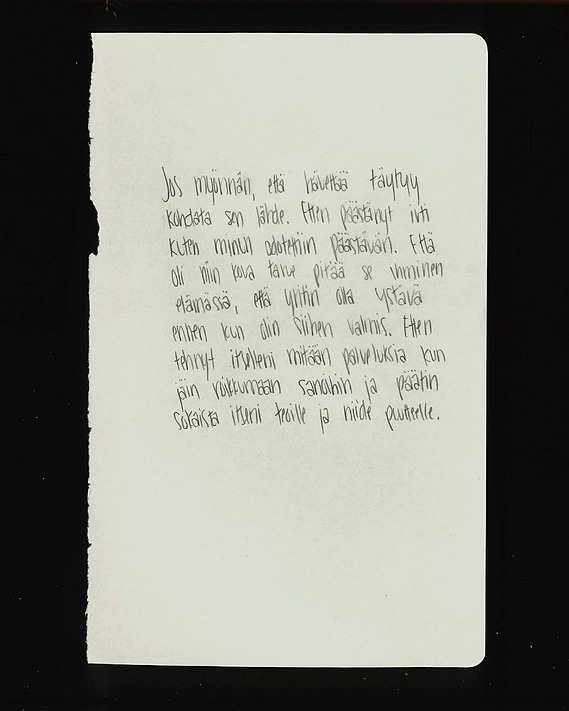 Jos myönnän, että hävettää täytyy
kohdata sen lähde. Etten päästänyt irti
kuten minun odotettiin päästävän. Että
oli niin kova tarve pitää se ihminen
elämässä, että yritin olla ystävä
ennen kun olin siihen valmis. Etten
tehnyt itselleni mitään palveluksia kun
jäin roikkumaan sanoihin ja päätin
sokaista itseni teoille ja niide puutteelle.